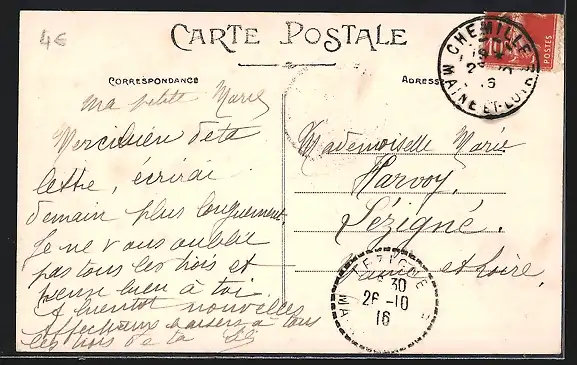 4€
CARTE POSTALE
CORRESPONDANCE
ADRESSE
ma petite Marie
Merci bien de ta
lettre, écrirai
demain plus longuement.
Je ne vous oublie
pas tous les trois et
pense bien à toi
A bientôt nouvelles
Affectueux baisers à tous
les trois de la
Mademoiselle Marie
Harvoy,
Sézigné.
Maine et Loire,
CHEMILLÉ
19
16
MAINE-ET-LOIRE
10
POSTES
30
26-10
16